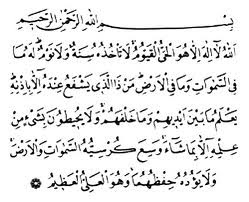 بِسْمِ اللهِ الرَّحْمٰنِ الرَّحِيْمِ
اَللهُ لَا اِلٰهَ اِلَّا هُوَ الْحَيُّ الْقَيُّوْمُ لَا تَأْخُذُهٗ سِنَةٌ وَلَا نَوْمٌ لَهٗ مَا
فِي السَّمٰوَاتِ وَمَا فِي الْاَرْضِ مَنْ ذَا الَّذِيْ يَشْفَعُ عِنْدَهٗ اِلَّا بِاِذْنِهٖ
يَعْلَمُ مَا بَيْنَ اَيْدِيْهِمْ وَمَا خَلْفَهُمْ وَلَا يُحِيْطُوْنَ بِشَيْءٍ مِنْ
عِلْمِهٖ اِلَّا بِمَا شَاءَ وَسِعَ كُرْسِيُّهُ السَّمٰوَاتِ وَالْاَرْضَ
وَلَا يَؤُدُهٗ حِفْظُهُمَا وَهُوَ الْعَلِيُّ الْعَظِيْمُ